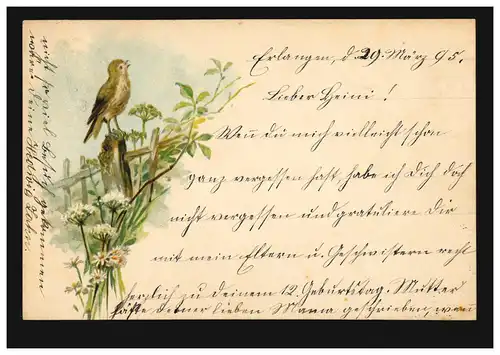 Erlangen, d. 29. März 95.
Lieber Heini!
Wen du mich vielleicht schon
ganz vergessen hast, habe ich Dich doch
nicht vergessen und gratuliere Dir
mit mein Eltern u. Geschwistern recht
herzlich zu deinem 12. Geburtstag. Mutter
hätte Deiner lieben Mama geschrieben, wen
nicht so viel Besuch gekommen
wäre. Deine